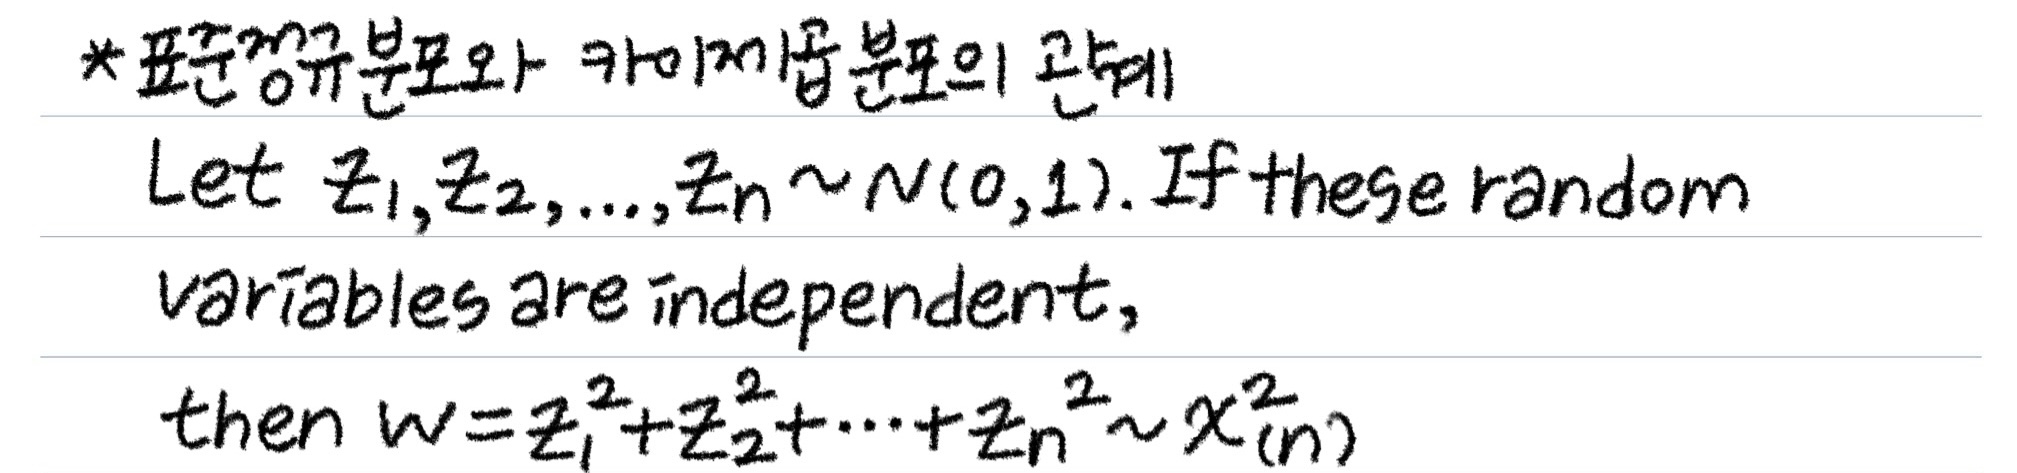 * 표준정규분포와 카이제곱분포의 관계
Let Z₁, Z₂, ..., Zₙ ~ N(0,1). If these random
variables are independent,
then W = Z₁² + Z₂² + ⋯ + Zₙ² ~ χ²₍ₙ₎